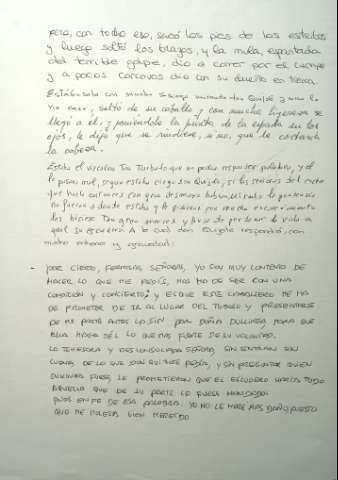 pero, con todo eso, sacó los pies de los estribos
y luego soltó los brazos, y la mula, espantada
del terrible golpe, dio a correr por el campo
y a pocos corcovos dio con su dueño en tierra.
Estábaselo con mucho sosiego mirando don Quijote y como lo
vio caer, saltó de su caballo y con mucha ligereza se
llegó a él, y poniéndole la punta de la espada en los
ojos, le dijo que se rindiese, si no, que le cortaría
la cabeza.
Estaba el vizcaíno tan turbado que no podía responder palabra, y él
lo pasara mal, según estaba ciego don Quijote, si las señoras del coche
que hasta entonces con gran desmayo habían mirado la pendencia
no fueran a donde estaba y le pidieran con mucho encarecimiento
les hiciese tan gran merced y favor de perdonar la vida a
aquel su escudero. A lo cual don Quijote respondió, con
mucho entono y gravedad:
- POR CIERTO, FERMOSAS SEÑORAS, YO SOY MUY CONTENTO DE
HACER LO QUE ME PEDÍS, MAS HA DE SER CON UNA
CONDICIÓN Y CONCIERTO, Y ES QUE ESTE CABALLERO ME HA
DE PROMETER DE IR AL LUGAR DEL TOBOSO Y PRESENTARSE
DE MI PARTE ANTE LA SIN PAR DOÑA DULCINEA PARA QUE
ELLA HAGA DÉL LO QUE MAS FUERE DE SU VOLUNTAD.
LA TEMEROSA Y DESCONSOLADA SEÑORA, SIN ENTRAR EN
CUENTA DE LO QUE DON QUIJOTE PEDÍA, Y SIN PREGUNTAR QUIEN
DULCINEA FUESE, LE PROMETIERON QUE EL ESCUDERO HARÍA TODO
AQUELLO QUE DE SU PARTE LE FUERA MANDADO:
PUES EN FE DE ESA PALABRA YO NO LE HARE MAS DAÑO, PUESTO
QUE ME LO TENÍA BIEN MERECIDO